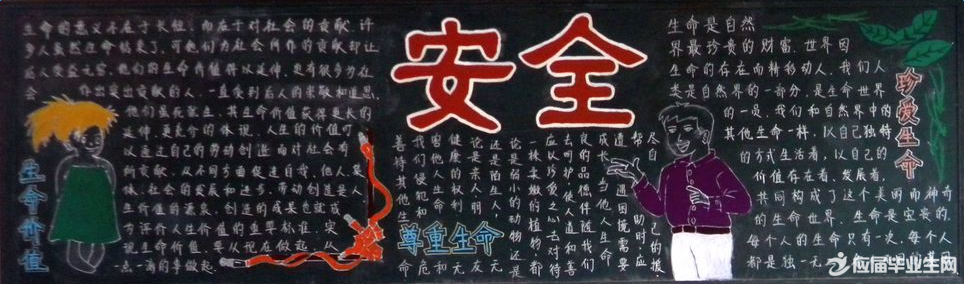 安全
生命的意义不在于长短,而在于对社会的贡献.许
多人虽然生命结束了,可他们为社会所作的贡献却让
后人受益无穷,他们的生命价值得以延伸.更有很多为社
会 作出突出贡献的人,一直受到后人的崇敬和追思,
他们虽死犹生,其生命价值获得更长的
延伸,更充分的体现.人生的价值可
以通过自己的劳动创造而对社会有
所贡献,从不同方面促进自我、他人、集
体、社会的发展和进步.劳动创造是人
生价值的源泉,创造的成果也就成
为评价人生价值的重要标准.实
现生命价值,要从现在做起,从
一点一滴的事做起.
生命价值
尽自己的援,
帮助时,应
道遇困境需要
成长.当他人生命
良的品德伴随我们
去呵护,使人道和善
应以珍爱之心去对待
一株柔嫩的植物,都
论是弱小的动物还是
还是陌生人,无
论是亲人、朋友
健康的权利.无
害他人生命和
我们侵犯和危
善待其他生命
尊重生命
生命是自然
界最珍贵的财富.世界因
生命的存在而精彩动人.我们人
类是自然界的一部分,是生命世界
的一员.我们和自然界中的
其他生命一样,以自己独特
的方式生活着,以自己的
价值存在着、发展着,
共同构成了这个美丽而神奇
的生命世界.生命是宝贵的,
每个人的生命只有一次,每个人
都是独一无
珍爱生命
应届毕业生网